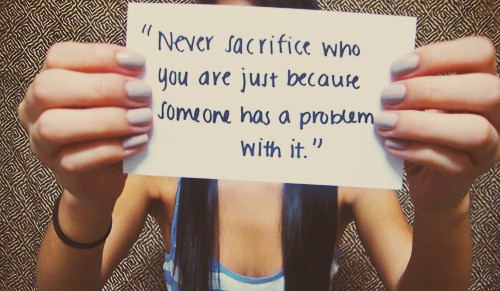 “Never sacrifice who
you are just because
someone has a problem
with it.”